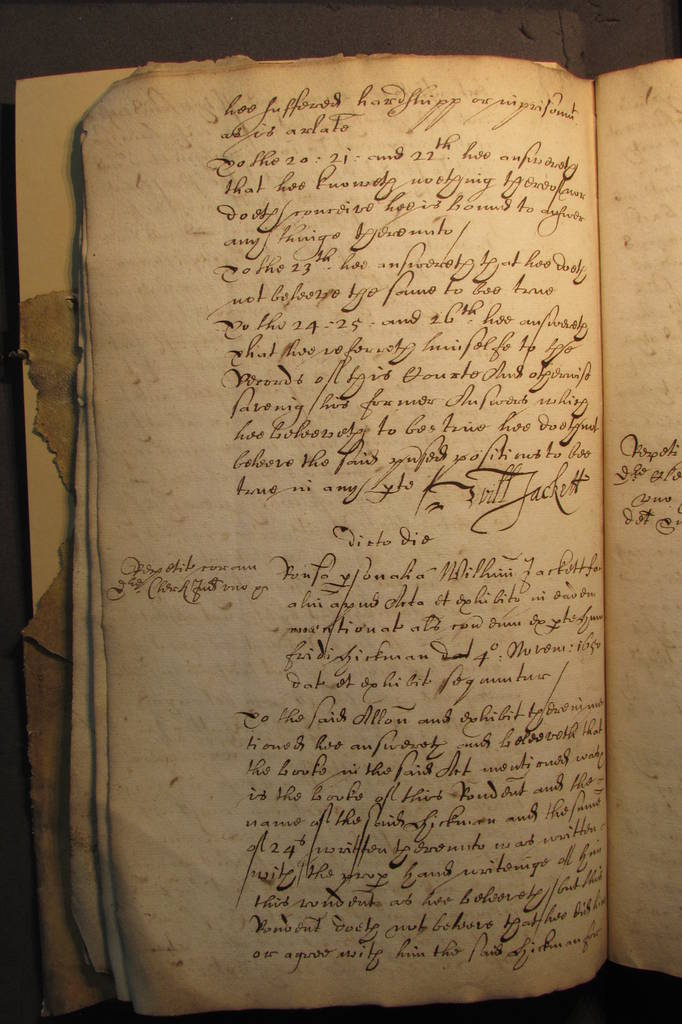 hee suffered hardshipp or imprisonmt
as is arlate
To the 20: 21: and 22th hee answereth
that hee knoweth nothing thereof nor
doeth conceive hee is bound to answer
any thinge thereunto /
To the 23th hee answereth that hee doeth
not beleeve the same to bee true
To the 24 - 25 - and 26th hee answereth
that hee referreth himselfe to the
Records of this Courte And otherwise
saveing his former Answers which
hee beleeveth to bee true hee doeth not
beleeve the said positions to bee
true in any pte / Will Jackett
dicto die
Repetit coram
Clerk Jud
Ronsa personalia Willimi Jackett
alm apud Acta et exhibit in eadem
mentionat als
Hickman dat 4o: Novem: 1650
dat et exhibit sequuntur /
To the said Allon and exhibit therein men
tioned hee answereth and beleeveth that
the booke in the said Act mentioned
is the booke of this Rondent and the
name of the said Hickman and the same
of 24s written thereunto was written
with the prop hand writeinge of him
this rondent as hee beleeveth, but this
Rondent doeth not beleeve that hee did
or agree with him the said Hickman for
Repeti